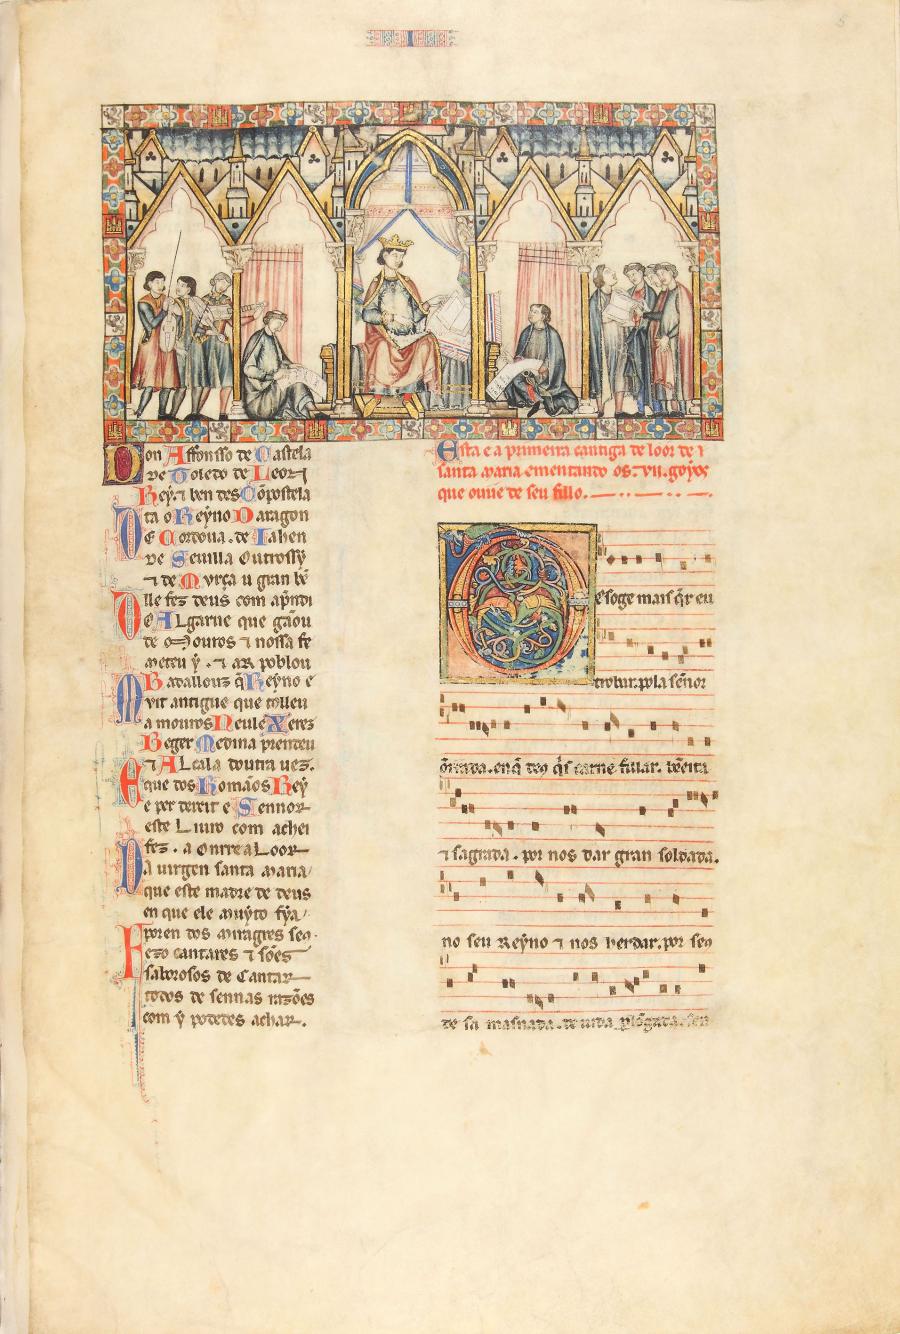 I
Don Affonsso de Castela
de Toledo de Leon
Rey ⁊ ben des Cõpostela
ta o Reyno Daragon
De Cordoua. de Iahen
de Seuilla Outrossy
⁊ de Murça u gran bẽ
lle fez deus com apñdi
Do Algarue que gãou
de Mouros ⁊ nossa fe
meteu y. ⁊ ar poblou
Badallouz q̃ Reyno e
Muit antigue que tolleu
a mouros Neul e Xerez
Beger Medina prendeu
⁊ Alcala doutra uez.
E que dos Romãos Rey
e per dereit e Sennor
este Liuro com achei
fez. a Onrr e a Loor
Da uirgen santa Maria
que este madre de deus
en que ele muyto fya
poren dos miragres seo
Fezo cantares ⁊ sões
saborosos de Cantar
todos de sennas razões
com y podedes achar.
Esta e a primeira cantiga de loor de
santa Maria ementando os. vii. goyos
que ouue de seu fillo.
Des oge mais q̃r eu
trobar. pola señor
õrrada. en q̃ deus q̃s carne fillar. bẽeita
⁊ sagrada. por nos dar gran soldada.
no seu Reyno ⁊ nos herdar. por seus
de sa masnada. de uida plõgada. sen